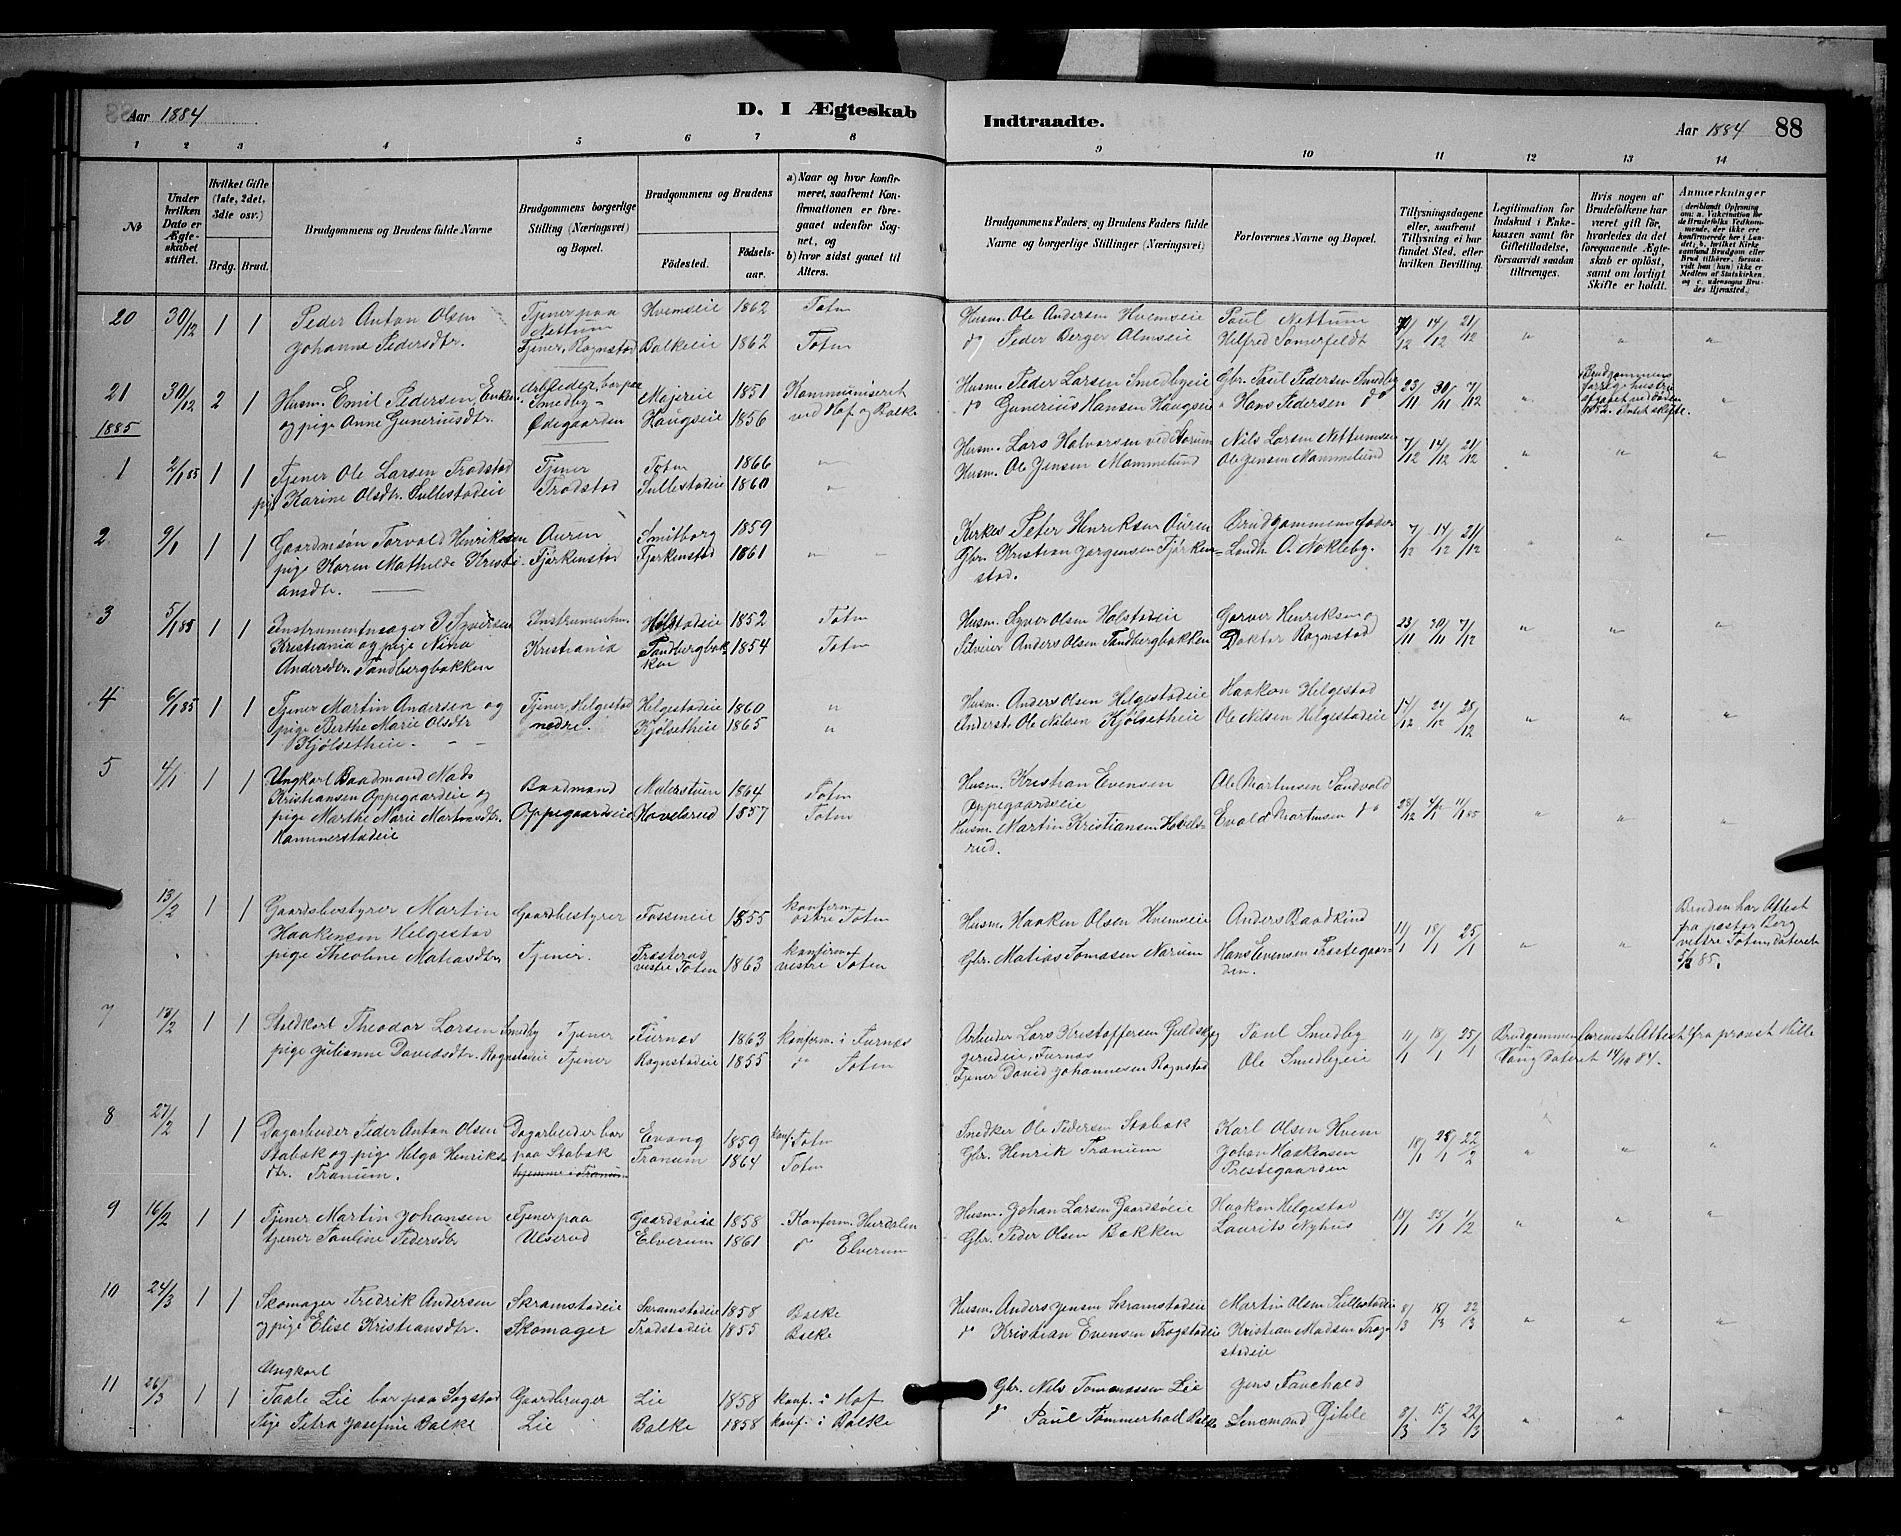 Aar 1884 D. I Ægteskab Indtraadte. Aar 1884 88
1 2 3 4 5 6 7 8 9 10 11 12 13 14
No
Under hvilken Dato er Ægteskabet stiftet.
Hvilket Gifte (1ste, 2det, 3die osv.)
Brdg. Brud.
Brudgommens og Brudens fulde Navne
Brudgommens borgerlige Stilling (Næringsvei) og Bopæl.
Brudgommens og Brudens
Fødested. Fødselsaar.
a) Naar og hvor konfirmeret, saafremt Konfirmationen er foregaaet udenfor Sognet, og
b) hvor sidst gaaet til Alters.
Brudgommens Faders og Brudens Faders fulde Navne og borgerlige Stillinger (Næringsvei)
Forlovernes Navne og Bopæl.
Tillysningsdagene eller, saafremt Tillysning ei har fundet Sted, efter hvilken Bevilling.
Legitimation for Indskud i Enkekassen samt for Giftetilladelse, forsaavidt saadan tiltrænges.
Hvis nogen af Brudefolkene har været gift før, hvorledes da det foregaaende Ægteskab er opløst, samt om lovligt Skifte er holdt.
Anmærkninger
20 30/12 1 1 Peder Anton Olsen Tjener paa Nettum Hvemseie 1862 Toten Husm. Ole Andersen Hvemseie Paul Nettum 14/12 21/12
Johanne Pedersdtr. Tjener, Rognstad Balkeeie 1862 Toten do Peder Berger Almseie Hilfred Somerfeldt
21 30/12 2 1 Husm. Emil Pedersen, Enkem. Arbeider, bor paa Smedby- Majereie 1851 Kommuniseret Husm. Peder Larsen Smedbyeie Gbr. Paul Pedersen Smedby 23/11 30/11 7/12 Brudgommens forrige hustru afgaaet ved døden 1882. Intet skifte.
og pige Anne Gunerius dtr. Ødegaarden Haugseie 1856 ved Hof og Balke do Gunerius Hansen Haugseie " Hans Pedersen do
1885
1 2/1 85 1 1 Tjener Ole Larsen Trodstad Tjener Toten 1866 Husm. Lars Halvorsen ved Narum Nils Larsen Nettumeie 7/12 14/12 21/12
pige Karine Olsdtr. Sullestadeie Trodstad Sullestadeie 1860 Husm. Ole Jensen Mammelund Ole Jensen Mammelund
2 9/1 1 1 Gaardmsøn Torvald Henriksen Auren Smitborg 1859 Kirkes Peter Henriksen Auren Brudgommens Fader 7/12 14/12 21/12
pige Karen Mathilde Kristi- Fjørkenstad Fjørkenstad 1861 Gbr. Kristian Jørgensen Fjørken- Landh. O. Nøkleby.
ansdtr. stad.
3 5/1 85 1 1 Instrumentmager P Syversen Instrumentm. Holstadeie 1852 Toten Husm. Syver Olsen Holstadeie Garver Henriksen og 23/11 30/11 7/12
Kristiania og pige Nina Kristiania Sandbergbakken 1854 Toten Anders Olsen Sandbergbakken Doktor Rognstad
Andersdtr. Sandbergbakken
4 6/1 85 1 1 Tjener Martin Andersen og Tjener, Helgestad Helgestadeie 1860 Husm. Anders Olsen Helgestadeie Haakon Helgestad 21/12 28/12
pige Berthe Marie Olsdtr nedre. Kjølsetheie 1865 Ole Nilsen Kjølsetheie Ole Nilsen Helgestadeie
Kjølsetheie.
5 4/1 1 1 Ungkarl Baadmand Mads Baadmand Malerstuen 1864 Toten Husm. Kristian Evensen Ole Martinsen Sandvold
Kristiansen Oppegaardeie og Oppegaardseie Hovelsrud 1857 Toten Oppegaardseie Evald Martinsen do 28/12 4/1 11/1 85
pige Marthe Marie Martinsdtr. Husm. Martin Kristiansen Hovels-
Kammerstadeie rud.
13/2 1 1 Gaardsbestyrer Martin Gaardbestyrer Fossmeie 1855 konferm østre Toten Husm. Haaken Olsen Hvemseie Anders Baadkind 11/1 18/1 25/1 Bruden har Attest
Haakensen Helgestad fra pastor Berg
pige Theoline Matiasdtr. Tjener. vestre Toten 1863 konferm vestre Toten Gbr. Matias Tomasen Narum Hans Evensen Prestegaarden. vestre Toten, dateret
85.
7 13/2 1 1 Staldkarl Theodor Larsen Smedby Tjener Furnas 1863 konferm. i Furnas Arbeider Lars Kristoffersen Paul Smedby 11/1 18/1 25/1 Brudgommen Attest fra provst Hille
pige Julianne Davidsdtr. Rognstadeie Tjener Rognstadeie 1855 do Toten Furnas Ole Smedbyeie Vang Dateret 14/10 84.
Tjener David Johannesen Rognstad
8 27/2 1 1 Dagarbeider Peder Anton Olsen Dagarbeider bor Evang 1859 Konf. Toten Smedker Ole Pedersen Stabæk Karl Olsen Hvem 18/1 25/1 22/2
Stabæk og pige Helga Henriks- paa Stabæk Tranum 1864 Toten Gbr. Henrik Tranum Johan Haakensen
dtr. Tranum. hjemme i Tranum Prestegaarden
9 16/2 1 1 Tjener Martin Johansen Tjener paa Gaardsøieie 1858 Konferm. Hurdalen Husm. Johan Larsen Gaardsøieie Haakon Helgestad 18/1 25/1 1/2
tjener Pauline Pedersdtr Ulserud Elverum 1861 do Elverum Gbr. Peder Olsen Bakken Laurits Nyhus
10 24/3 1 1 Skomager Fredrik Andersen Skramstadeie Skramstadeie 1858 Balke Husm. Anders Jensen Skramstadeie Martin Olsen Sullestadeie 8/3 15/3 22/3
og pige Elise Kristiansdtr. Skomager Trodstadeie 1855 Balke do Kristian Evensen Trogstadeie Kristian Madsen Trog-
stadeie
11 26/3 1 1 Ungkarl
Taale Lie bor paa Sogstad Gaardbruger Lie 1858 konf. i Hof Gbr. Nils Tommassen Lie Jens Fauchald
Pige Petra Josefine Balke Lie Balke 1858 konf. i Balke do Paul Tømmerhol Balke Lensmand Gihle 8/3 15/3 22/3